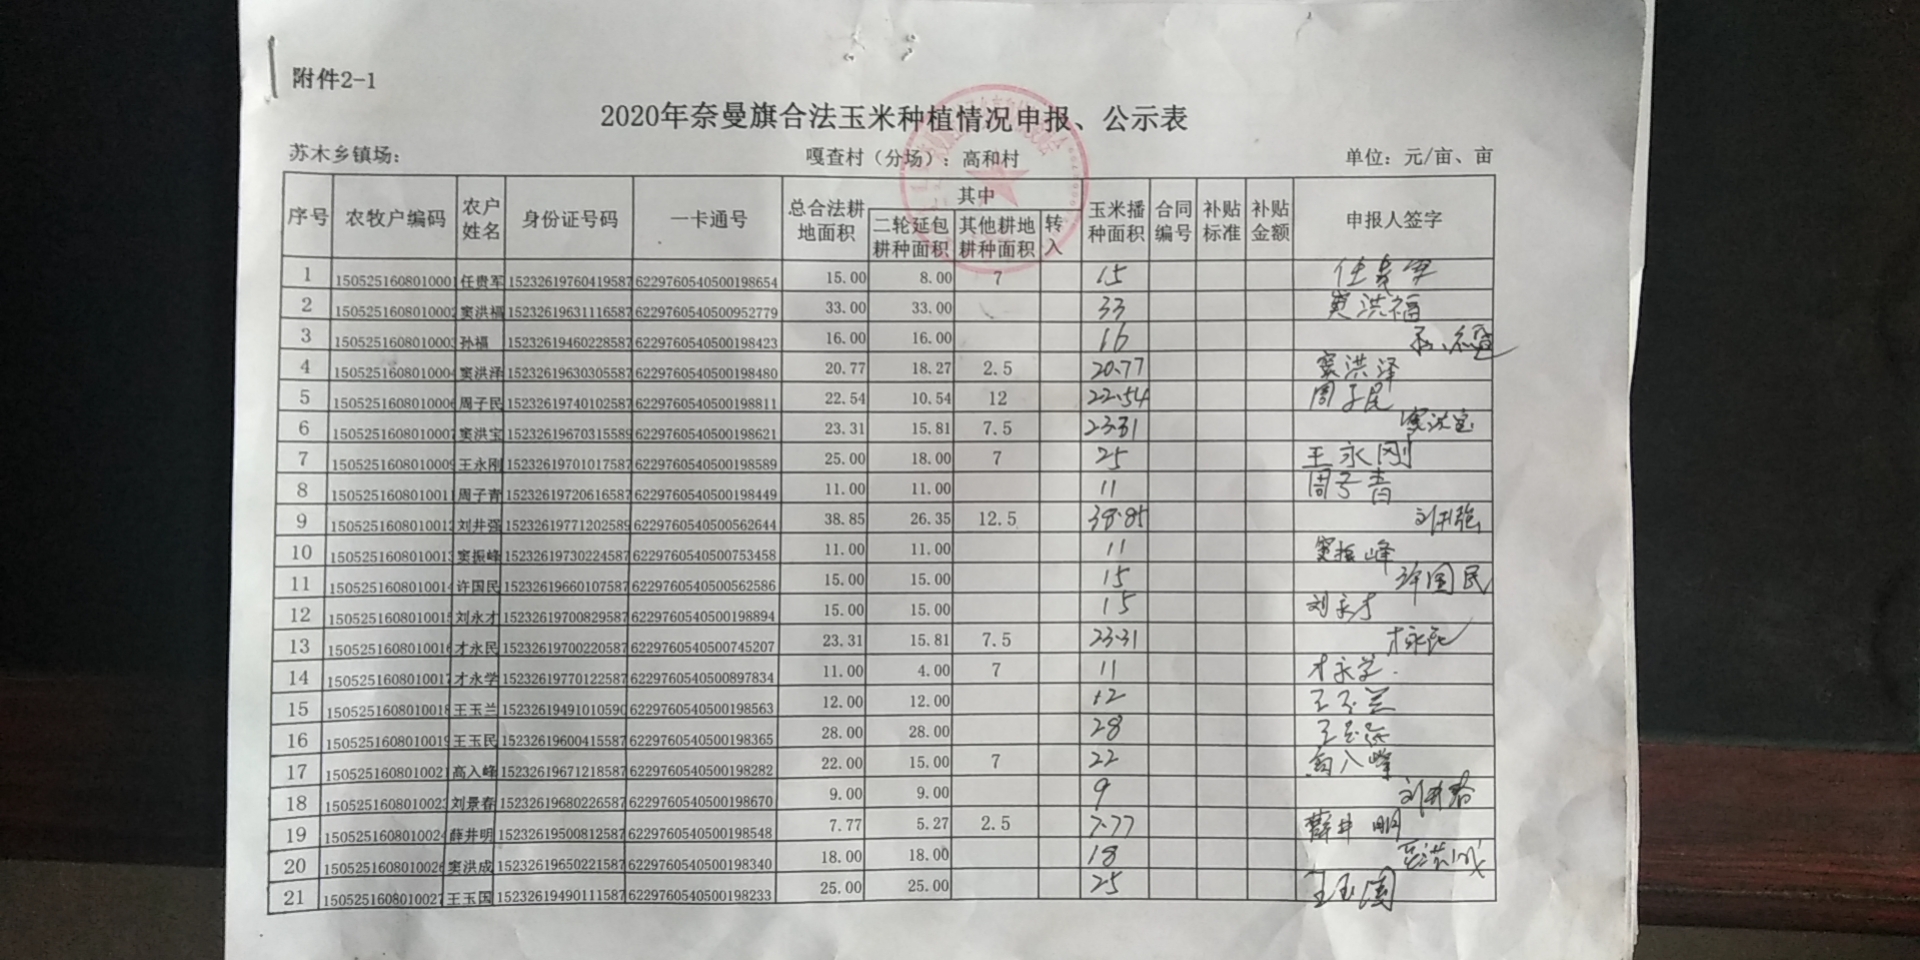 附件2-1
2020年奈曼旗合法玉米种植情况申报、公示表
苏木乡镇场: 嘎查村（分场）: 高和村 单位: 元/亩、亩
序号 农牧户编码 农户姓名 身份证号码 一卡通号 总合法耕地面积 其中 二轮延包耕种面积 其他耕地耕种面积 转入 玉米播种面积 合同编号 补贴标准 补贴金额 申报人签字
1 1505251608010001 任贵军 15232619760419587 6229760540500198654 15.00 8.00 7 15 任贵军
2 1505251608010002 窦洪福 15232619631116587 6229760540500952779 33.00 33.00 33 窦洪福
3 1505251608010003 孙福 15232619460228587 6229760540500198423 16.00 16.00 16
4 1505251608010004 窦洪泽 15232619630305587 6229760540500198480 20.77 18.27 2.5 20.77 窦洪泽
5 1505251608010006 周子民 15232619740102587 6229760540500198811 22.54 10.54 12 22.54 周子民
6 1505251608010007 窦洪宝 15232619670315589 6229760540500198621 23.31 15.81 7.5 23.31 窦洪宝
7 1505251608010009 王永刚 15232619701017587 6229760540500198589 25.00 18.00 7 25 王永刚
8 1505251608010011 周子青 15232619720616587 6229760540500198449 11.00 11.00 11 周子青
9 1505251608010012 刘井强 15232619771202589 6229760540500562644 38.85 26.35 12.5 38.85 刘井强
10 1505251608010013 窦振峰 15232619730224587 6229760540500753458 11.00 11.00 11 窦振峰
11 1505251608010014 许国民 15232619660107587 6229760540500562586 15.00 15.00 15 许国民
12 1505251608010015 刘永才 15232619700829587 6229760540500198894 15.00 15.00 15 刘永才
13 1505251608010016 才永民 15232619700220587 6229760540500745207 23.31 15.81 7.5 23.31 才永民
14 1505251608010017 才永学 15232619770122587 6229760540500897834 11.00 4.00 7 11 才永学
15 1505251608010018 王玉兰 15232619491010590 6229760540500198563 12.00 12.00 12 王玉兰
16 1505251608010019 王玉民 15232619600415587 6229760540500198365 28.00 28.00 28 王玉民
17 1505251608010021 高入峰 15232619671218587 6229760540500198282 22.00 15.00 7 22 高八峰
18 150525160801002 刘景春 15232619680226587 6229760540500198670 9.00 9.00 9
19 1505251608010024 薛井明 15232619500812587 6229760540500198548 7.77 5.27 2.5 7.77 薛井明
20 1505251608010026 窦洪成 15232619650221587 6229760540500198340 18.00 18.00 18
21 1505251608010027 王玉国 15232619490111587 6229760540500198233 25.00 25.00 25 王玉国